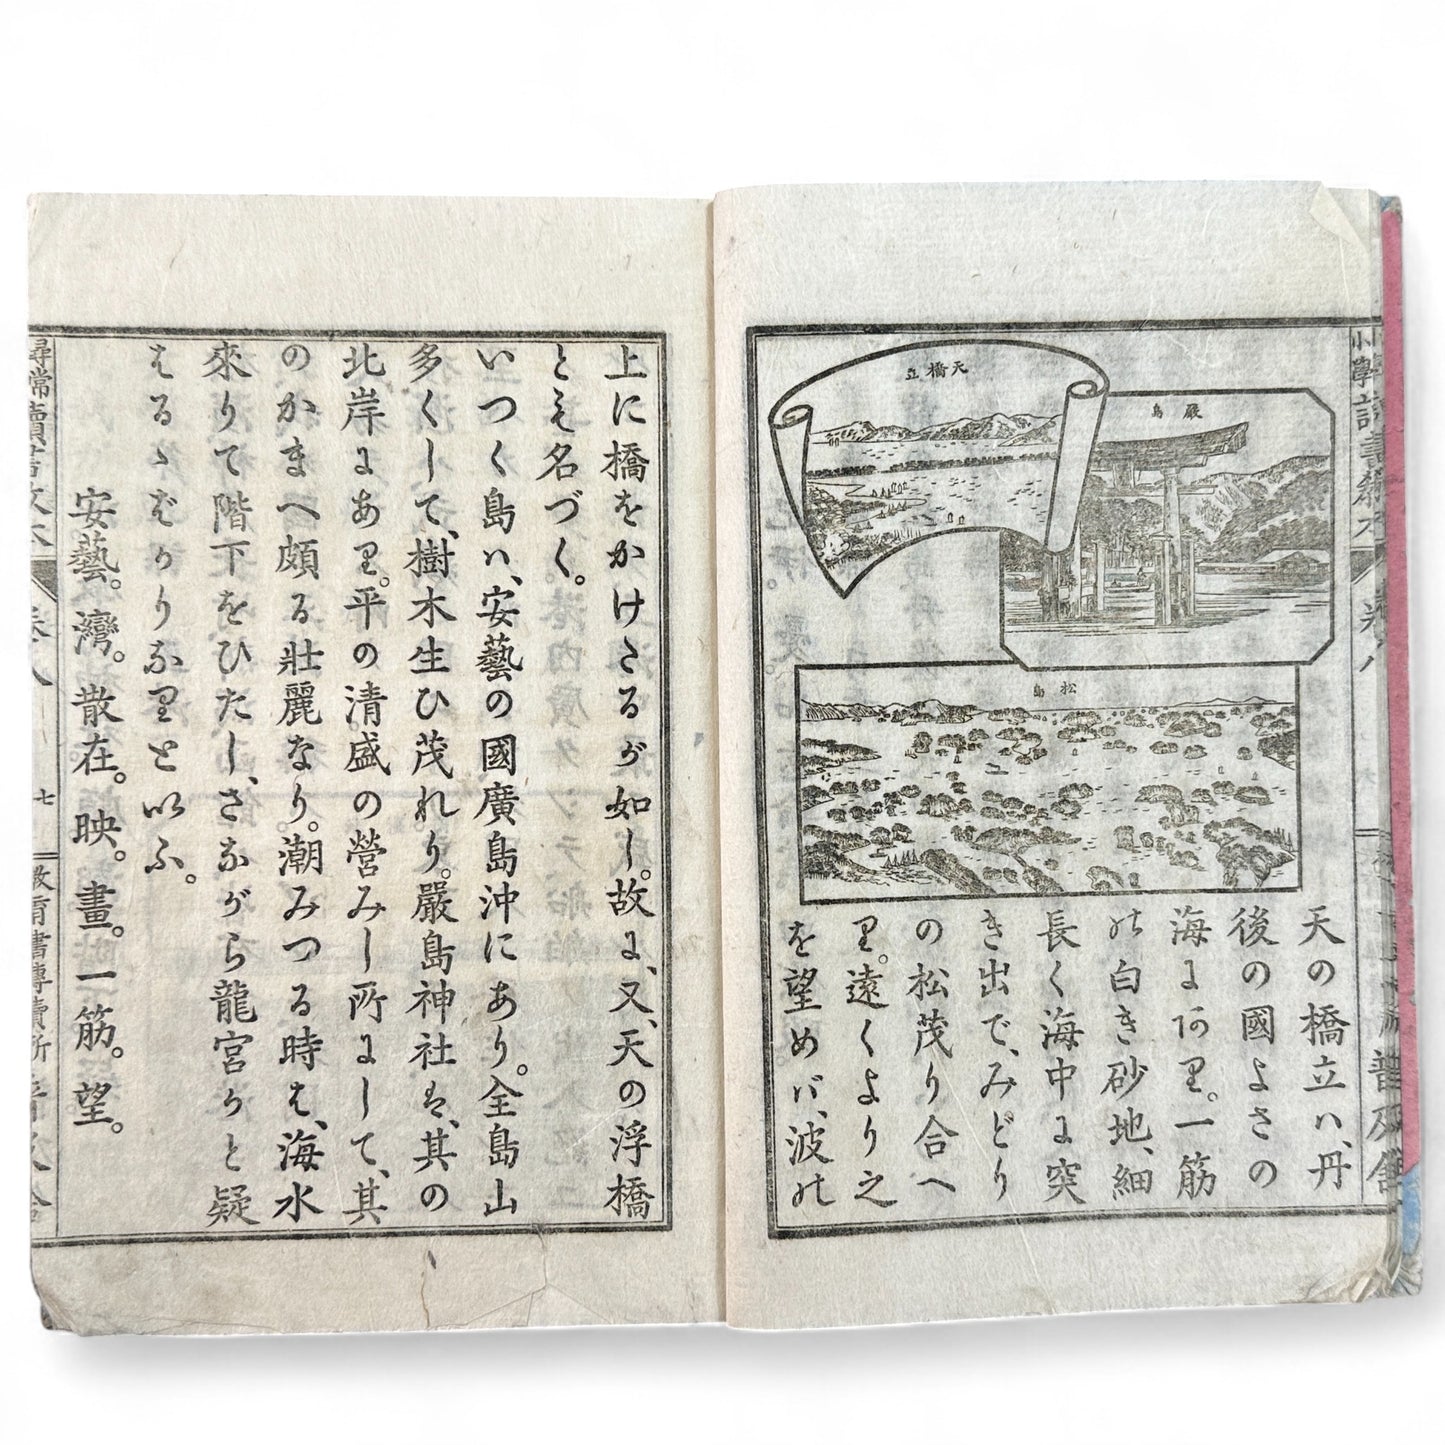 天橋立
嚴島
松島
天の橋立ハ、丹
後の國よさの
海にあり。一筋
の白き砂地、細
長く海中に突
き出で、みどり
の松茂り合へ
り。遠くより之
を望めバ、波の
上に橋をかけたるが如し。故に、又、天の浮橋
とも名づく。
いつく島ハ、安藝の國廣島沖にあり。全島山
多くして、樹木生ひ茂れり。嚴島神社は、其の
北岸にあり。平の清盛の營みし所にして、其
のかまへ頗る壯麗なり。潮みつる時は、海水
來りて階下をひたし、さながら龍宮かと疑
はるゝばかりなりといふ。
安藝。灣。散在。映。畫。一筋。望。
尋常讀書教本
卷八
七